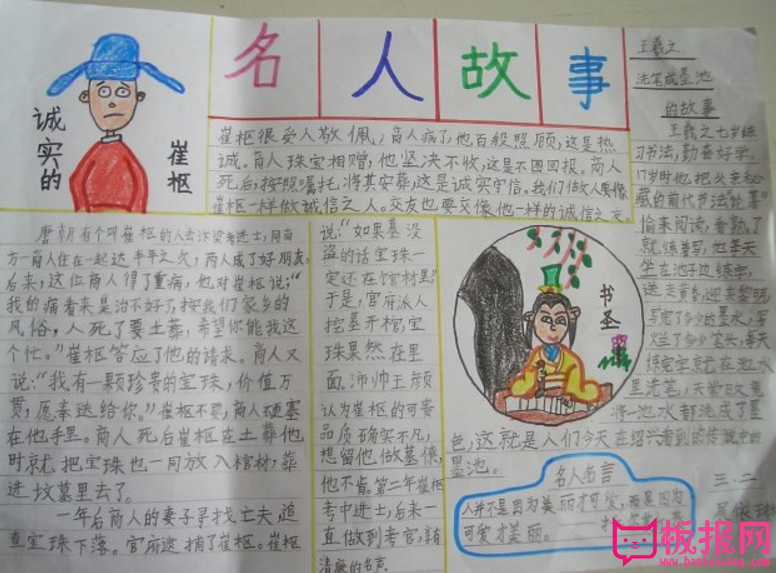 名人故事
诚实的
崔枢
崔枢很受人敬佩,商人病了,他百般照顾,这是热
诚。商人珠宝相赠,他坚决不收,这是不图回报。商人
死后,按照嘱托,将其安葬,这是诚实守信。我们做人要像
崔枢一样做诚信之人。交友也要交像他一样的诚信之友。
唐朝有个叫崔枢的人去汴梁考进士,同南
方一商人住在一起达半年之久,两人成了好朋友。
后来,这位商人得了重病,他对崔枢说:“
我的病看来是治不好了,按我们家乡的
风俗,人死了要土葬,希望你能我这
个忙。”崔枢答应了他的请求。商人又
说:“我有一颗珍贵的宝珠,价值万
贯,愿奉送给你。”崔枢不要,商人硬塞
在他手里。商人死后崔枢在土葬他
时就把宝珠也一同放入棺材,葬
进坟墓里去了。
一年后商人的妻子寻找亡夫,追
查宝珠下落。官府逮捕了崔枢。崔枢
说:“如果墓没
盗的话宝珠一
定还在馆材里”
于是,官府派人
挖墓开棺,宝
珠果然在里
面。沛帅王颜
认为崔枢的可贵
品质确实不凡,
想留他做幕僚,
他不肯。第二年崔枢
考中进士,后来一
直做到考官,享有
清廉的名声。
王羲之
洗笔成墨池
的故事
王羲之七岁练
习书法,勤奋好学。
17岁时他把父亲秘
藏的前代书法论著
偷来阅读,看熟了
就练着写,他每天
坐在池子边练字,
送走黄昏,迎来黎明,
写完了多少的墨水,写
烂了多少笔头,每天
练完字就在池水
里洗笔,天长日久竟
将一池水都洗成了墨
色,这就是人们今天在绍兴看到的传说中的
墨池。
书圣
名人名言
人并不是因为美丽才可爱,而是因为
可爱才美丽。
三.二
板报网
www.banbaowang.com